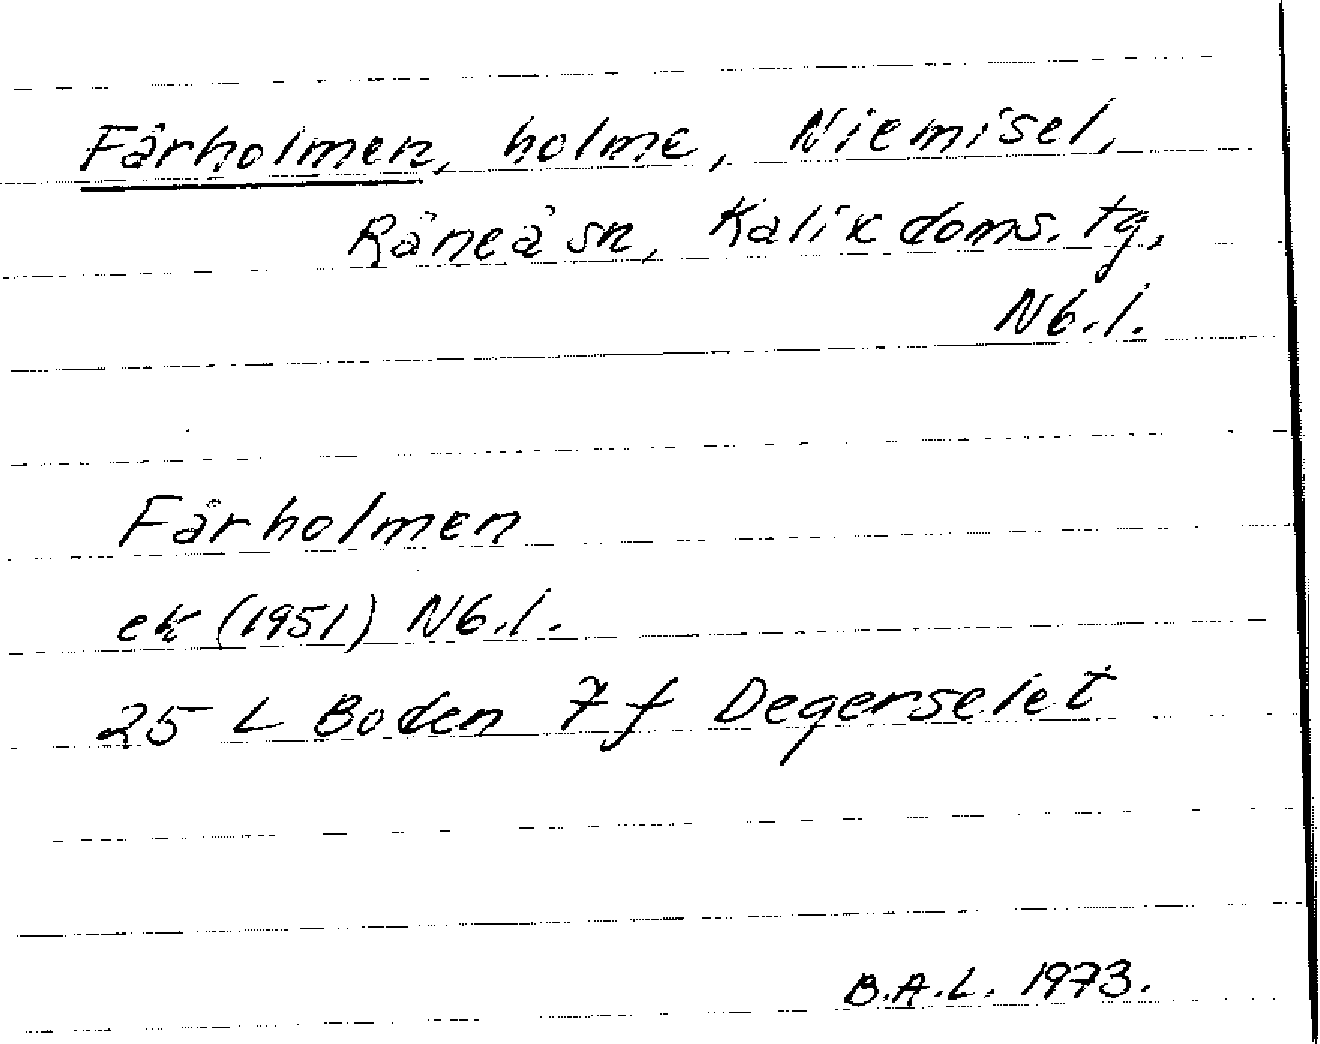 Fårholmen, holme, Niemisel,
Råneå sn, Kalix doms. tg,
Nb. l.
Fårholmen
ek (1951) Nb. l.
25 L Boden 7 f Degerselet
B.A.L. 1973.